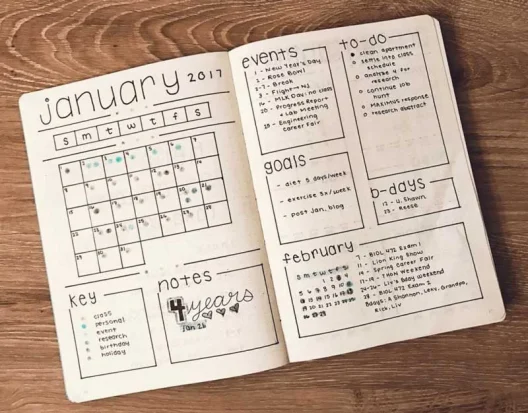 january 2017
s m t w t f s
key
class
personal
event
research
birthday
holiday
notes
4 years
Jan 26
events
1 - New Year's Day
2 - Rose Bowl
2-7 - Break
3 - Flight → NJ
16 - MLK Day: no class
20 - Progress Report
+ Lab Meeting
- Engineering
Career Fair
goals
- diet 5 days/week
- exercise 3x/week
- post Jan. blog
to-do
clean apartment
settle into class
schedule
analyze 4 for
research
continue job
hunt
MAXIMUS response
research abstract
b-days
13 - U. Shawn
- Reese
february
s m t w t f s
7 - BIOL 472 Exam 1
11 - Lion King Show
- Spring Career Fair
17-19 - THON Weekend
24-26 - Liv's Bday Weekend
28 - BIOL 472 Exam 2
Bdays: A Shannon, Lexy, Grandpa,
Rick, Liv